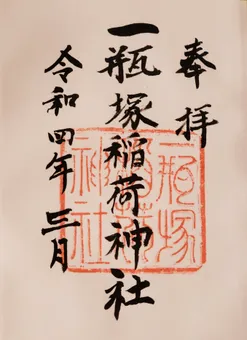 奉拝
一瓶塚稲荷神社
令和四年三月
一瓶塚
稲荷
神社